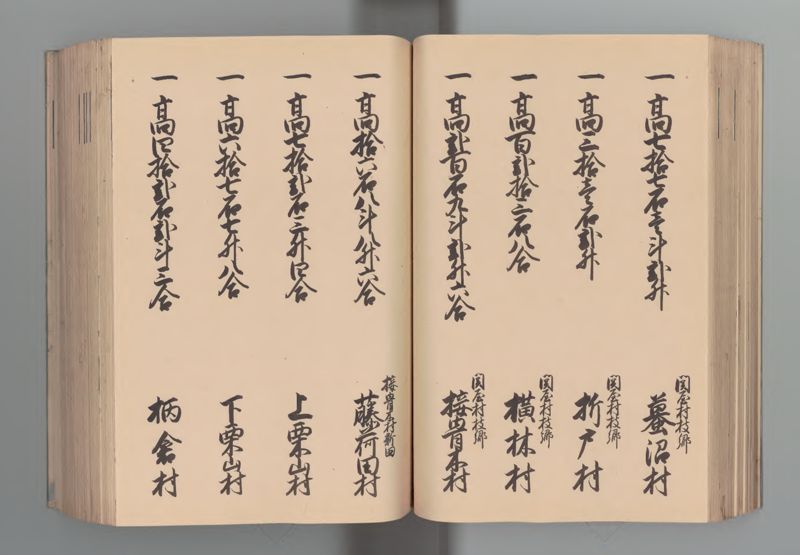 一 高七拾七石壱斗弐升
関屋村枝郷
蟇沼村
一 高三拾壱石弐升
関屋村枝郷
折戸村
一 高百弐拾三石八合
関屋村枝郷
横林村
一 高弐百石九斗弐升六合
接骨木村
一 高拾六石八斗八升六合
接骨木村新田
藤荷田村
一 高七拾弐石三升四合
上栗山村
一 高六拾七石七升八合
下栗山村
一 高四拾弐石弐斗三合
柄倉村